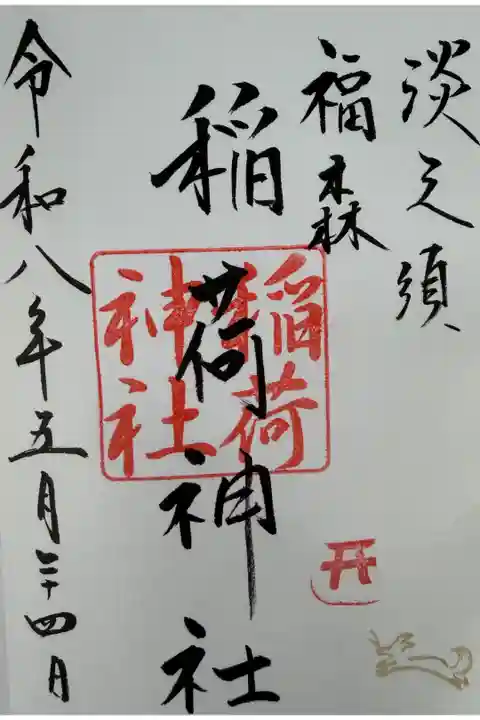 淡之須
福森
稲荷神社
稲荷
神社
令和八年五月二十四日